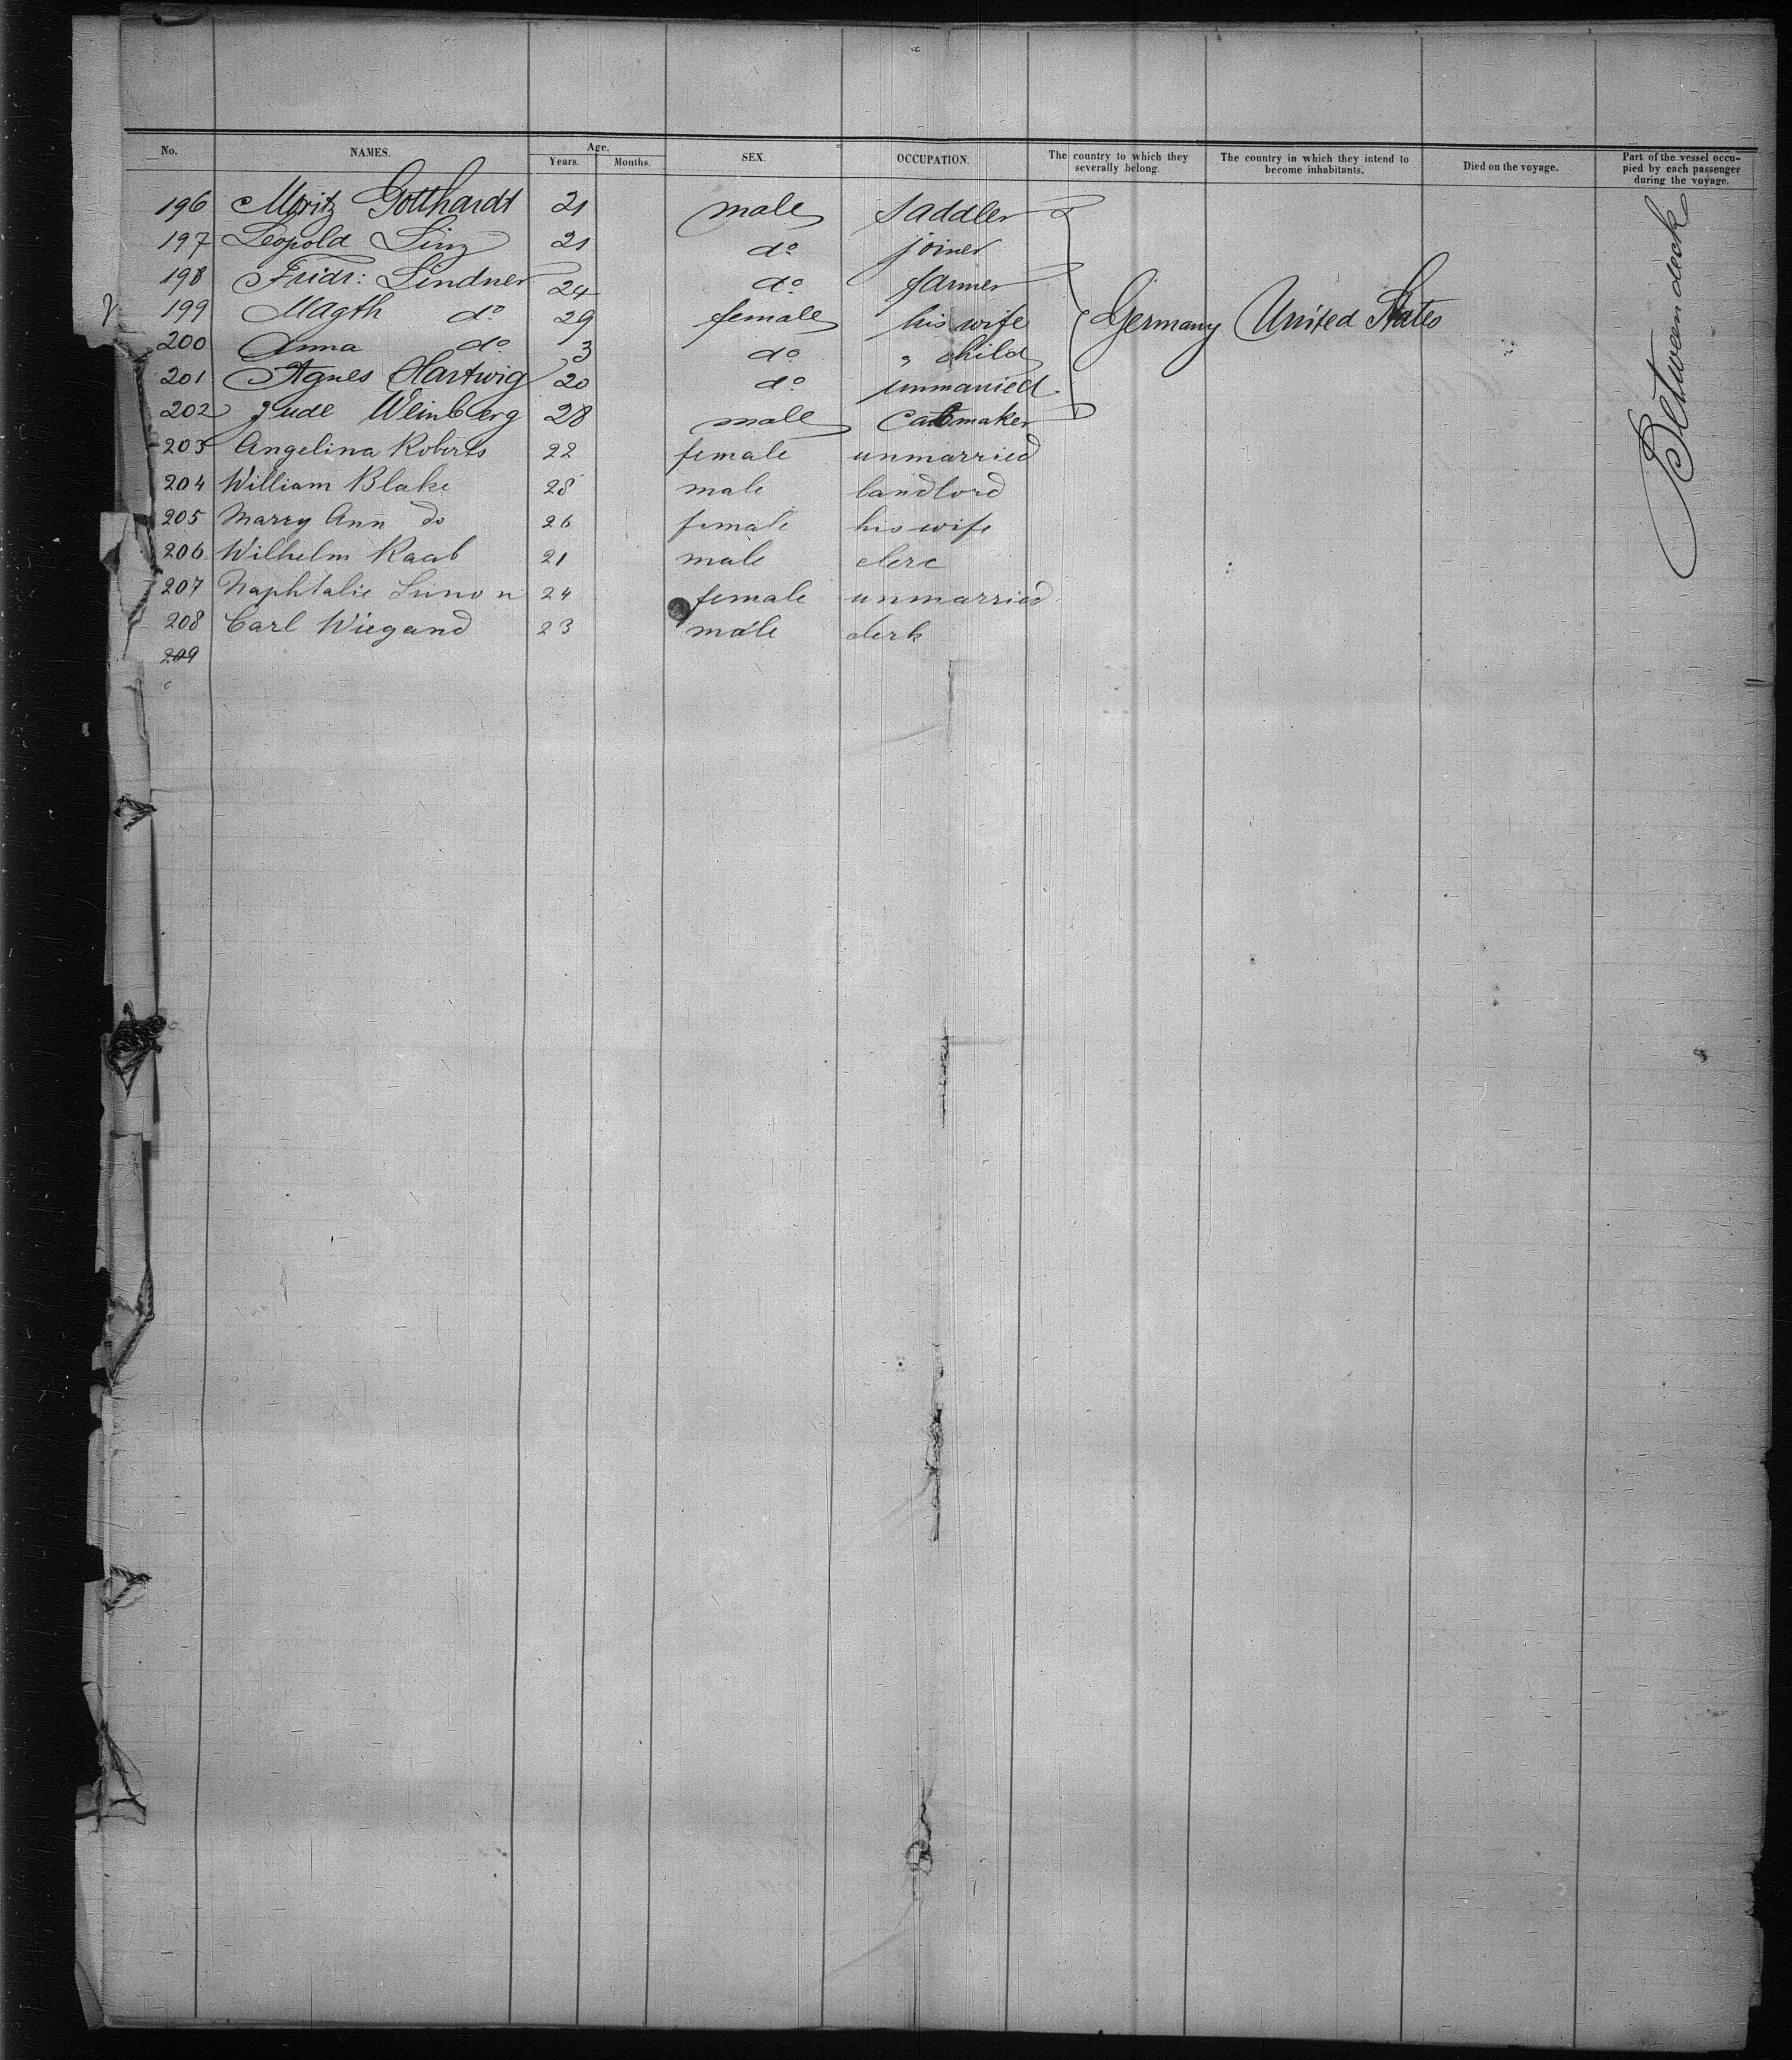 No. NAMES. Age. Years. Months. SEX. OCCUPATION. The country to which they severally belong. The country in which they intend to become inhabitants. Died on the voyage. Part of the vessel occupied by each passenger during the voyage.
196 Moritz Gotthardt 21 male saddler
197 Leopold Linz 21 do joiner
198 Fridr: Lindner 24 do farmer
199 Magth do 29 female his wife Germany United States
200 Anna do 3 do " child
201 Agnes Hartwig 20 do unmarried
202 Jude Weinberg 28 male capmaker
203 Angelina Roberts 22 female unmarried
204 William Blake 28 male landlord
205 Marry Ann do 26 female his wife
206 Wilhelm Raab 21 male clerc
207 Naphtalie 24 female unmarried
208 Carl Wiegand 23 male clerk
209
Betweendeck